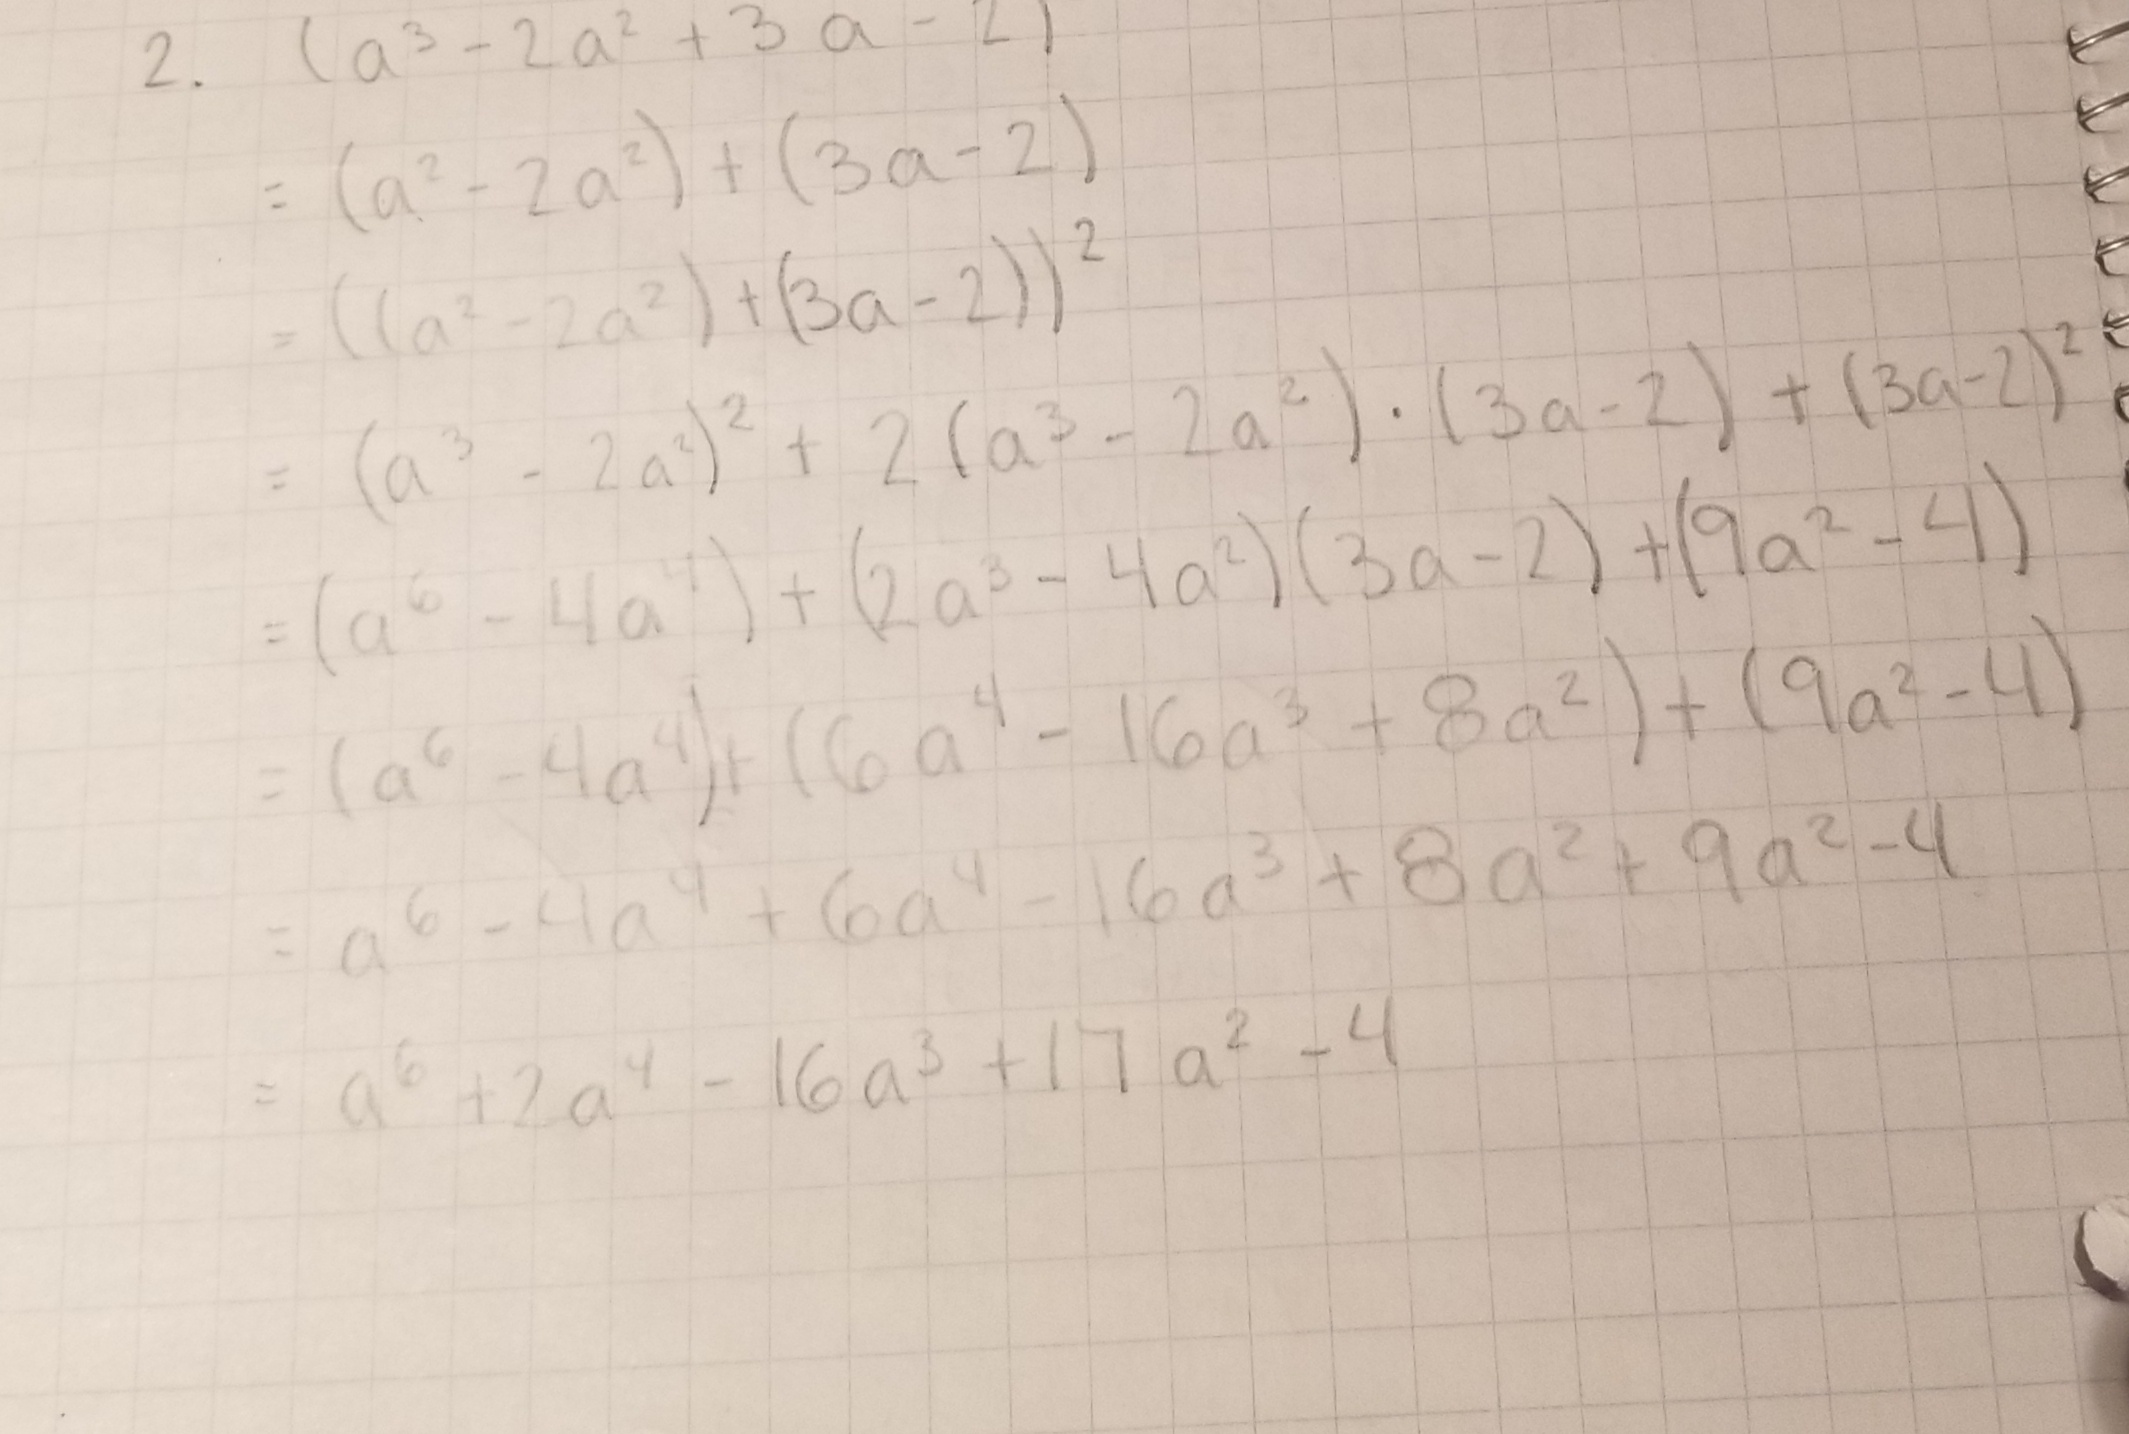 2. (a³ - 2a² + 3a - 2)
= (a² - 2a²) + (3a - 2)
= ((a² - 2a²) + (3a - 2))²
= (a³ - 2a²)² + 2(a³ - 2a²) · (3a - 2) + (3a - 2)²
= (a⁶ - 4a⁴) + (2a³ - 4a²)(3a - 2) + (9a² - 4)
= (a⁶ - 4a⁴) + (6a⁴ - 16a³ + 8a²) + (9a² - 4)
= a⁶ - 4a⁴ + 6a⁴ - 16a³ + 8a² + 9a² - 4
= a⁶ + 2a⁴ - 16a³ + 17a² - 4